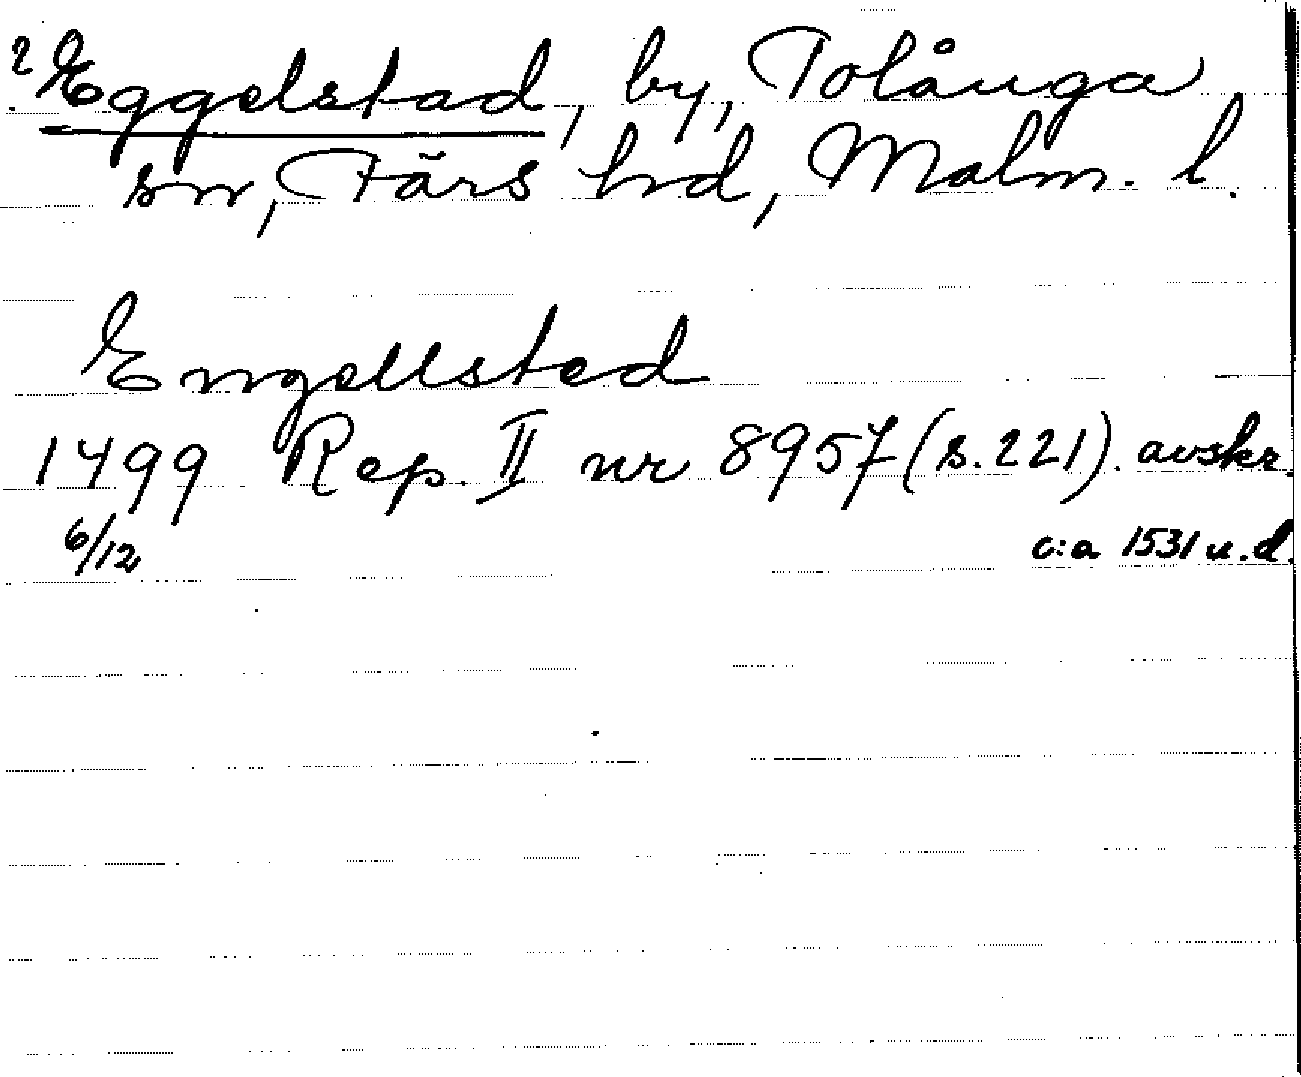 ? Eggelstad, by, Tolånga
sn, Färs hd, Malm. l.
Engellsted
1499 Rep. II nr 8957 (s. 221). avskr.
6/12 c:a 1531 u.d.